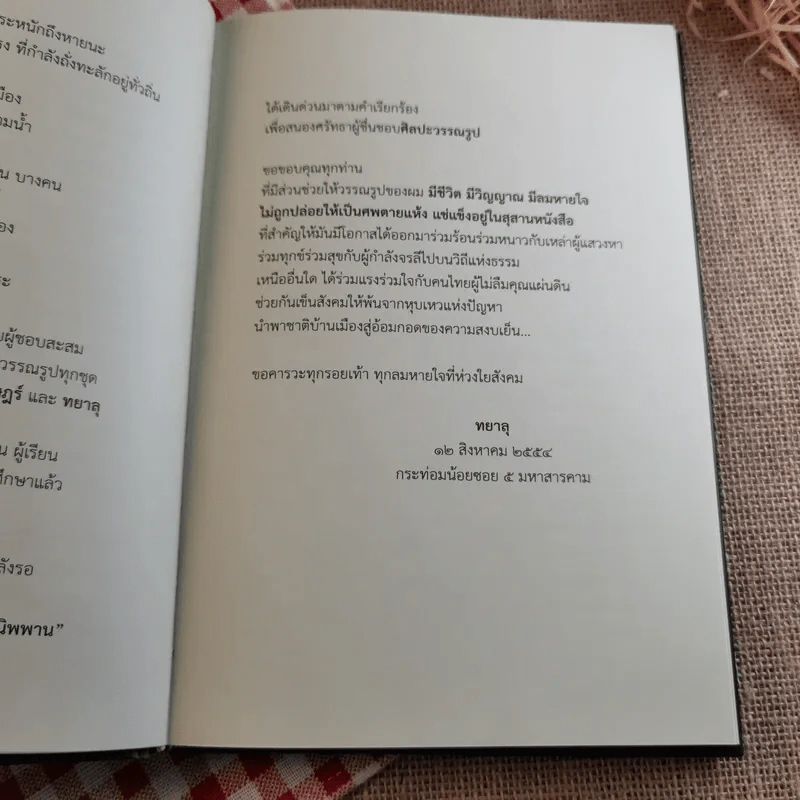 ระหนักถึงหายนะ
ที่กำลังถั่งทะลักอยู่ทั่วถิ่น
น บางคน
ผู้ชอบสะสม
วรรณรูปทุกชุด
และ ทยาลุ
น ผู้เรียน
ศึกษาแล้ว
ลังรอ
นิพพาน”
ได้เดินด่วนมาตามคำเรียกร้อง
เพื่อสนองศรัทธาผู้ชื่นชอบศิลปะวรรณรูป
ขอขอบคุณทุกท่าน
ที่มีส่วนช่วยให้วรรณรูปของผม มีชีวิต มีวิญญาณ มีลมหายใจ
ไม่ถูกปล่อยให้เป็นศพตายแห้ง แช่แข็งอยู่ในสุสานหนังสือ
ที่สำคัญให้มันมีโอกาสได้ออกมาร่วมร้อนร่วมหนาวกับเหล่าผู้แสวงหา
ร่วมทุกข์ร่วมสุขกับผู้กำลังจรลีไปบนวิถีแห่งธรรม
เหนืออื่นใด ได้ร่วมแรงร่วมใจกับคนไทยผู้ไม่ลืมคุณแผ่นดิน
ช่วยกันเข็นสังคมให้พ้นจากหุบเหวแห่งปัญหา
นำพาชาติบ้านเมืองสู่อ้อมกอดของความสงบเย็น...
ขอคารวะทุกรอยเท้า ทุกลมหายใจที่ห่วงใยสังคม
ทยาลุ
๑๒ สิงหาคม ๒๕๕๔
กระท่อมน้อยซอย ๕ มหาสารคาม